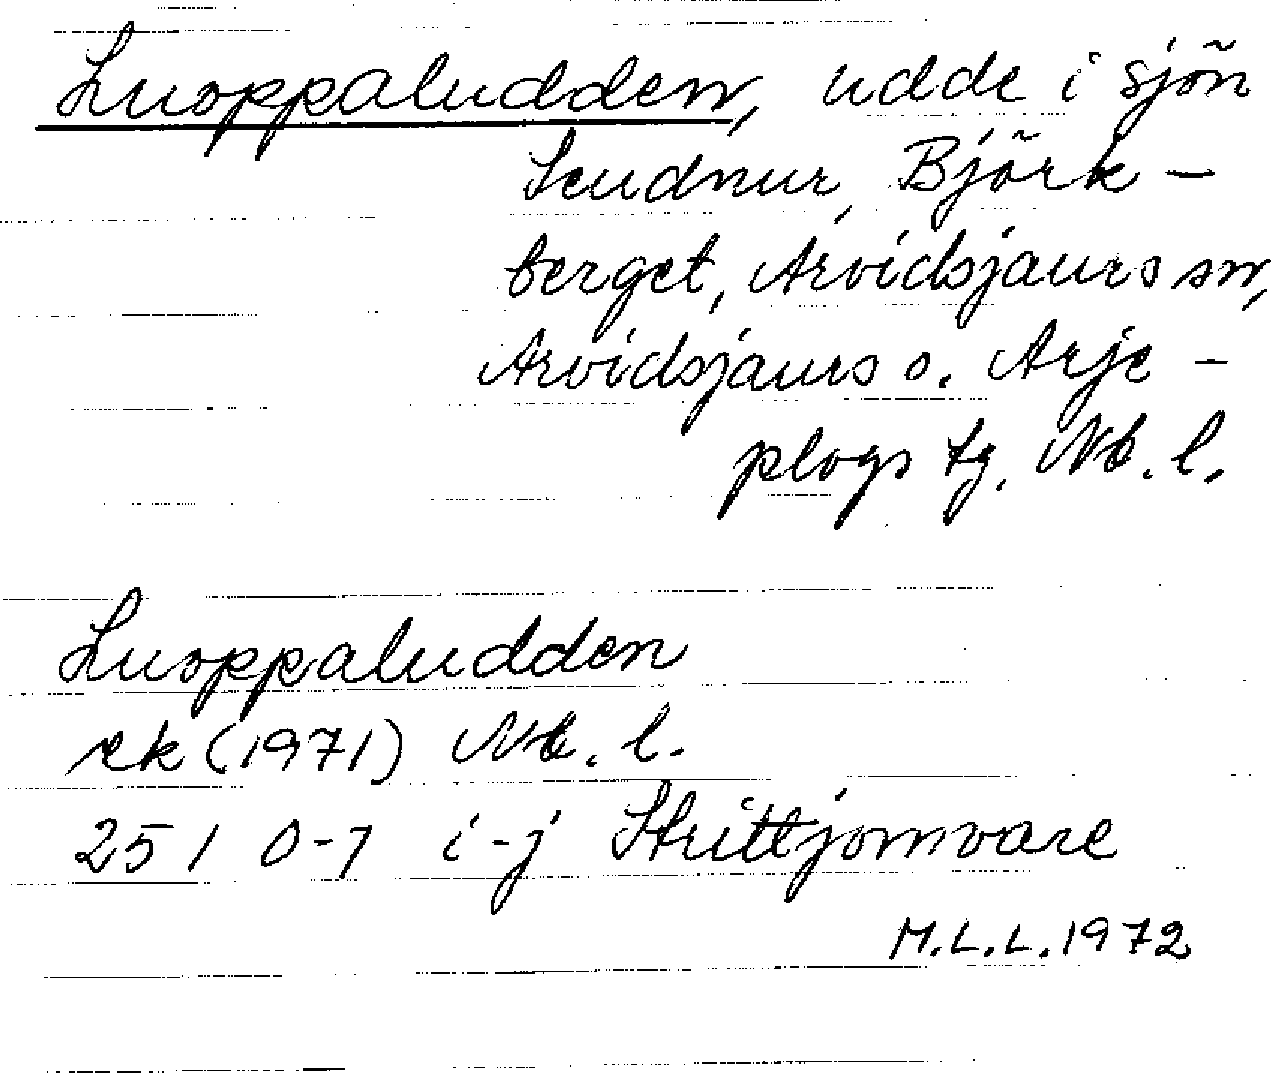 Luoppaludden, udde i sjön
Seudnur, Björk-
berget, Arvidsjaurs sn,
Arvidsjaurs o. Arje-
plogs tg. Nb. l.
Luoppaludden
ek (1971) Nb. l.
25 I 0-1 i-j Strittjomvare
M.L.L. 1972